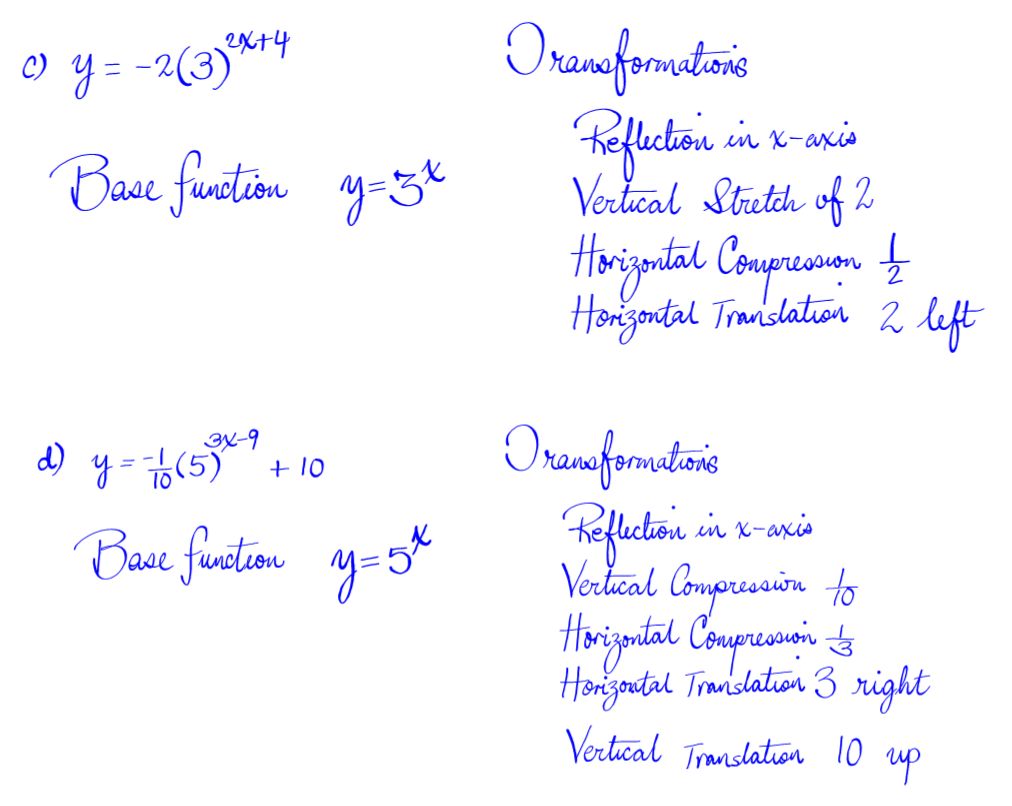 c) y = -2(3)^{2x+4}
Base function y=3^x
Transformations
Reflection in x-axis
Vertical Stretch of 2
Horizontal Compression 1/2
Horizontal Translation 2 left
d) y = -1/10 (5)^{3x-9} + 10
Base function y=5^x
Transformations
Reflection in x-axis
Vertical Compression 1/10
Horizontal Compression 1/3
Horizontal Translation 3 right
Vertical Translation 10 up